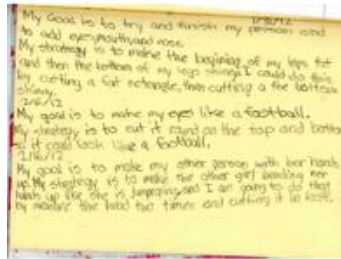 1/31/12
My Goal is to try and finish my person and
to add eyes, mouth and nose.
My strategy is to make the begining of my legs fat
and then the bottom of my legs skinny. I could do this
by cutting a fat rectangle, then cutting a the bottom
skinny.
2/6/12
My goal is to make my eyes like a football.
My strategy is to cut it round on the top and bottom
so it could look like a football.
2/16/12
My goal is to make my other person with her hands
up. My strategy is to make the other girl bending her
hands up like she is jumping, and I am going to do that
by the hand two times and cutting it in